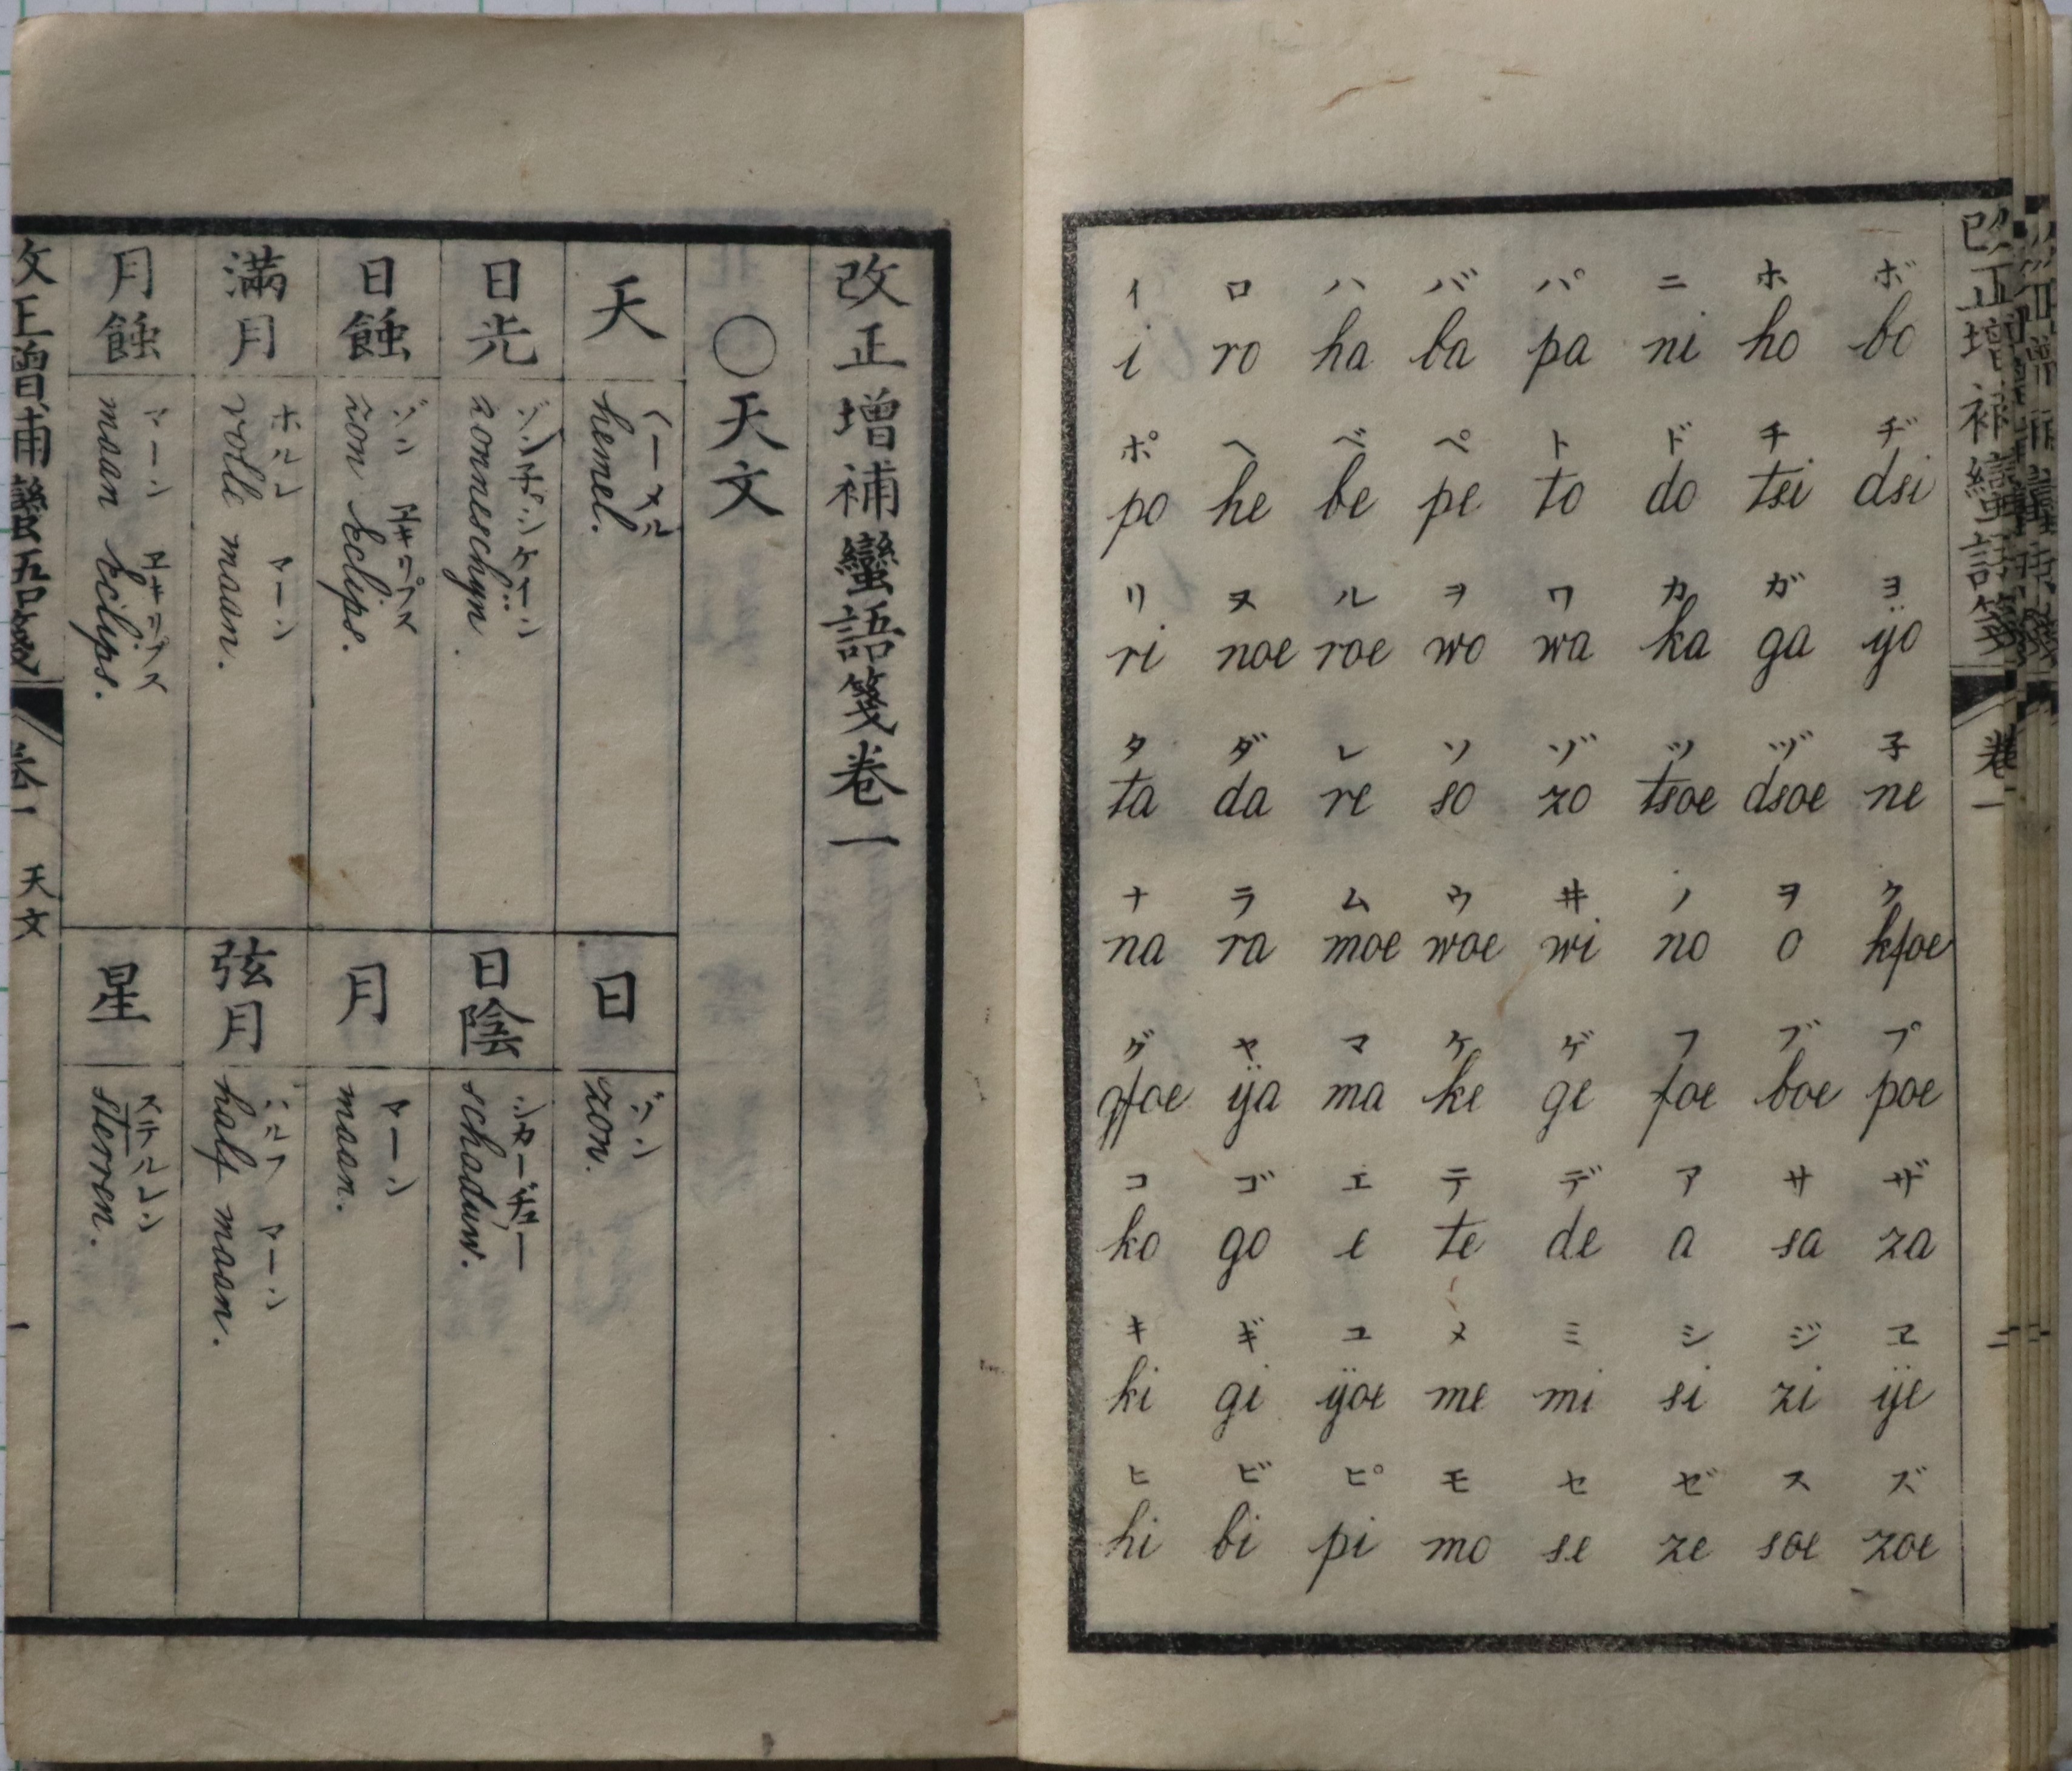 改正増補蛮語箋
卷一
二
イ ロ ハ バ パ ニ ホ ボ
i ro ha ba pa ni ho bo
ポ ヘ ベ ペ ト ド チ ヂ
po he be pe to do tsi dsi
リ ヌ ル ヲ ワ カ ガ ヨ
ri noe roe wo wa ka ga ÿo
タ ダ レ ソ ゾ ツ ヅ 子
ta da re so zo tsoe dsoe ne
ナ ラ ム ウ ヰ ノ ヲ ク
na ra moe woe wi no o kfoe
グ ヤ マ ケ ゲ フ ブ プ
gfoe ÿa ma ke ge foe boe poe
コ ゴ エ テ デ ア サ ザ
ko go e te de a sa za
キ ギ ユ メ ミ シ ジ ヱ
ki gi ÿoe me mi si zi ÿe
ヒ ビ ピ モ セ ゼ ス ズ
hi bi pi mo se ze soe zoe
改正増補蠻語箋卷一
○天文
天
ヘーメル
hemel.
日
ゾン
zon.
日光
ゾン子シケイン
zonneschÿn.
日陰
シカーデュー
schaduw.
日蝕
ゾン ヱキリプス
zon Eclips.
月
マーン
maan.
満月
ホルレ マーン
volle maan.
弦月
ハルフ マーン
half maan.
月蝕
マーン ヱキリプス
maan Eclips.
星
ステルレン
sterren.
改正増補蠻語箋
卷一 天文
一